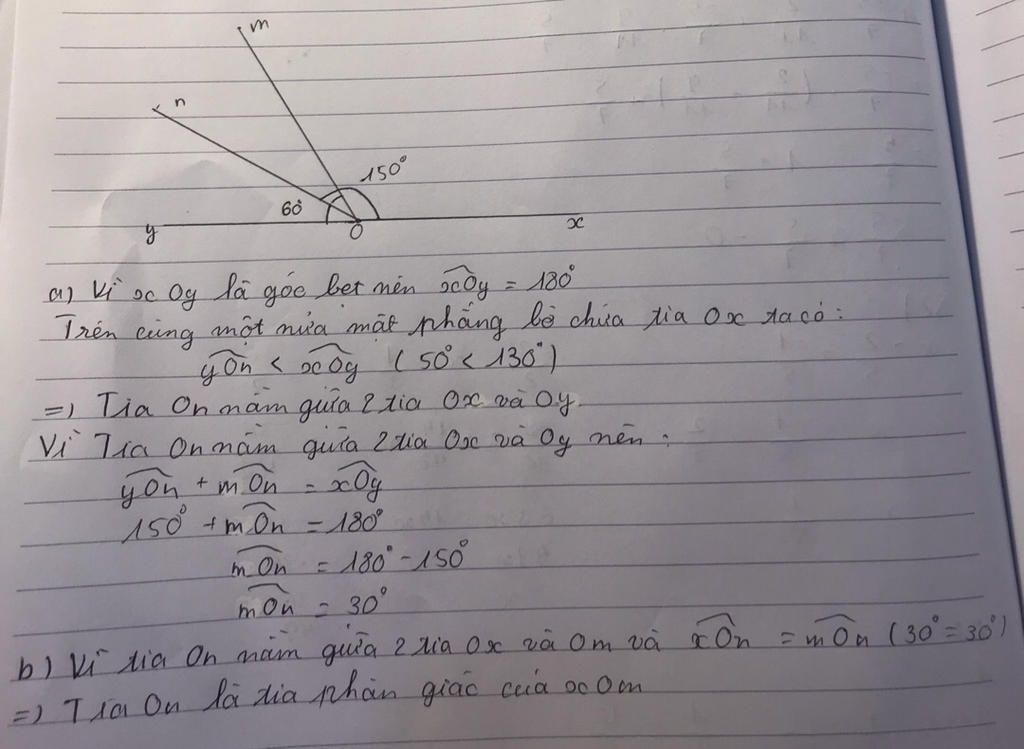 m
n
150°
60°
y
O
x
a) Vì xOy là góc bẹt nên xÔy = 180°
Trên cùng một nửa mặt phẳng bờ chứa tia Ox ta có:
yÔn < xÔy (50° < 130°)
=) Tia On nằm giữa 2 tia Ox và Oy.
Vì Tia On nằm giữa 2 tia Ox và Oy nên :
yÔn + mÔn = xÔy
150° + mÔn = 180°
mÔn = 180° - 150°
mÔn = 30°
b) Vì tia On nằm giữa 2 tia Ox và Om và xÔn = mÔn (30° = 30°)
=) Tia On là tia phân giác của xOm